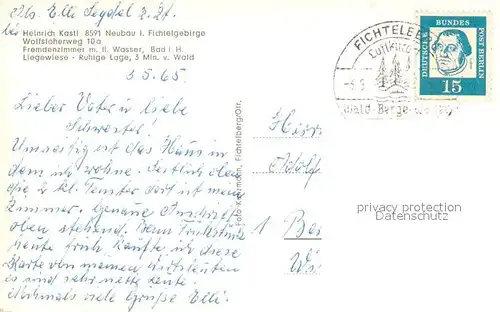 Abs. Elli Seydel z. Zt.
bei
Heinrich Kastl 8591 Neubau i. Fichtelgebirge
Wolfsloherweg 10a
Fremdenzimmer m. fl. Wasser, Bad i. H.
Liegewiese - Ruhige Lage, 3 Min. v. Wald
3 5. 65
Lieber Vater u. liebe
Schwester!
Umseitig ist das Haus in
dem ich wohne. Seitlich oben
die 2 kl. Fenster dort ist mein
Zimmer. Genaue Anschrift
oben stehend. Beim Frühstück
heute früh kaufte ich diese
Karte von meinen Wirtsleuten
es sind sehr nette Leute.
Nochmals viele Grüße Elli.
Fichtelberg/Ofr.
FICHTELBE
Luftkuro
Wald-Berge-Wa
DEUTSCHE BUNDES POST BERLIN
15
privacy protection
Datenschutz
1 Be